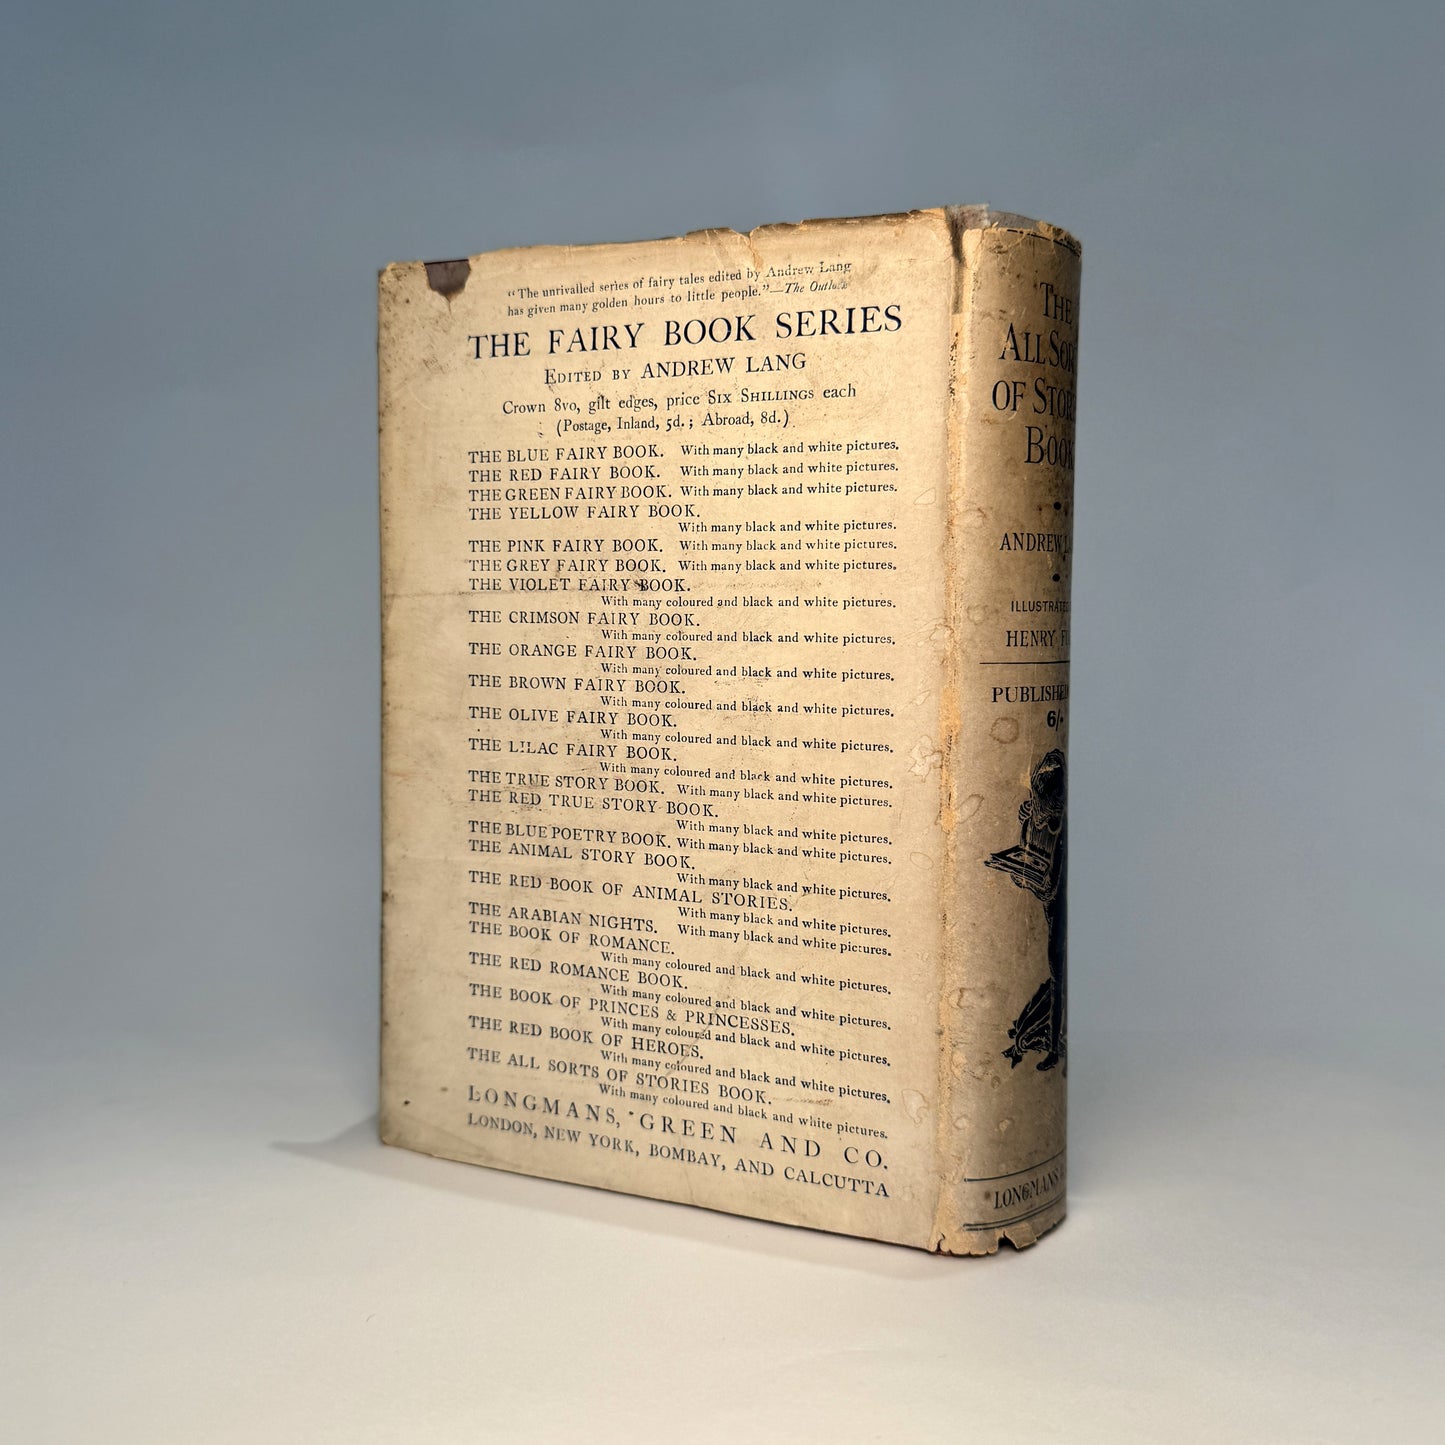 "The unrivalled series of fairy tales edited by Andrew Lang
has given many golden hours to little people."—The Outlook
THE FAIRY BOOK SERIES
EDITED BY ANDREW LANG
Crown 8vo, gilt edges, price SIX SHILLINGS each
(Postage, Inland, 5d.; Abroad, 8d.)
THE BLUE FAIRY BOOK. With many black and white pictures.
THE RED FAIRY BOOK. With many black and white pictures.
THE GREEN FAIRY BOOK. With many black and white pictures.
THE YELLOW FAIRY BOOK.
With many black and white pictures.
THE PINK FAIRY BOOK. With many black and white pictures.
THE GREY FAIRY BOOK. With many black and white pictures.
THE VIOLET FAIRY BOOK.
With many coloured and black and white pictures.
THE CRIMSON FAIRY BOOK.
With many coloured and black and white pictures.
THE ORANGE FAIRY BOOK.
With many coloured and black and white pictures.
THE BROWN FAIRY BOOK.
With many coloured and black and white pictures.
THE OLIVE FAIRY BOOK.
With many coloured and black and white pictures.
THE LILAC FAIRY BOOK.
With many coloured and black and white pictures.
THE TRUE STORY BOOK. With many black and white pictures.
THE RED TRUE STORY BOOK.
With many black and white pictures.
THE BLUE POETRY BOOK. With many black and white pictures.
THE ANIMAL STORY BOOK.
With many black and white pictures.
THE RED BOOK OF ANIMAL STORIES.
With many black and white pictures.
THE ARABIAN NIGHTS. With many black and white pictures.
THE BOOK OF ROMANCE.
With many coloured and black and white pictures.
THE RED ROMANCE BOOK.
With many coloured and black and white pictures.
THE BOOK OF PRINCES & PRINCESSES.
With many coloured and black and white pictures.
THE RED BOOK OF HEROES.
With many coloured and black and white pictures.
THE ALL SORTS OF STORIES BOOK.
With many coloured and black and white pictures.
LONGMANS, GREEN AND CO.
LONDON, NEW YORK, BOMBAY, AND CALCUTTA
THE
ALL SOR
OF STOR
BOOK
ANDREW LA
ILLUSTRATED
HENRY F
PUBLISHED
6/-
LONGMANS &